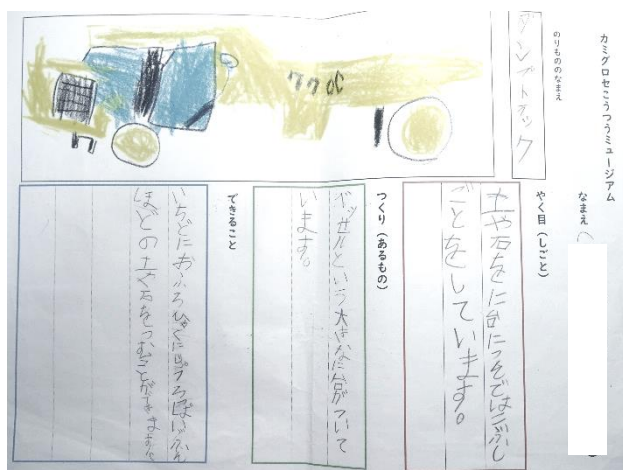 カミグロセこうつうミュージアム
なまえ
のりもののなまえ
ダンプトラック
やく目(しごと)
土や石をに台につんではこぶし
ごとをしています。
つくり(あるもの)
ベッセルという大きなに台がついて
います。
できること
いちどにおふろ
ほどの土や石をつむことができます。